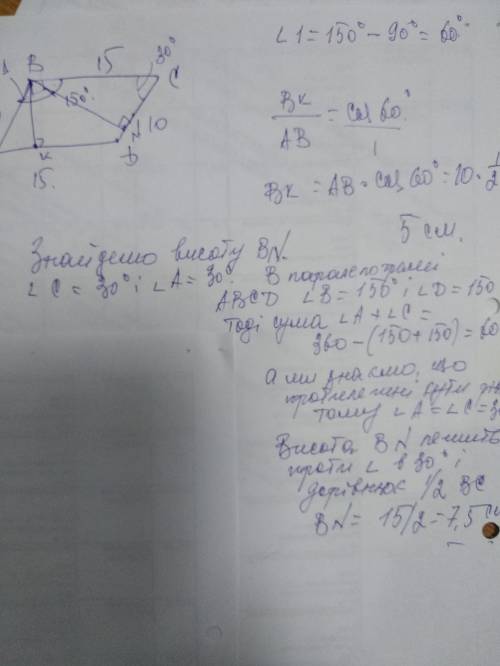 ∠1=150°-90°=60°
B 15 30° C
150°
N 10
K D
15.
BK/AB = cos 60°
1
BK = AB · cos 60° = 10 · 1/2
5 см.
Знайдемо висоту BN.
∠C = 30° і ∠A = 30°. В паралелограмі
ABCD ∠B = 150° і ∠D = 150
тоді сума ∠A + ∠C =
360 - (150+150) = 60
А ми знаємо, що
протилежні кути
тому ∠A = ∠C = 3
Висота BN лежить
проти ∠ в 30° і
дорівнює 1/2 BC
BN = 15/2 = 7,5 см